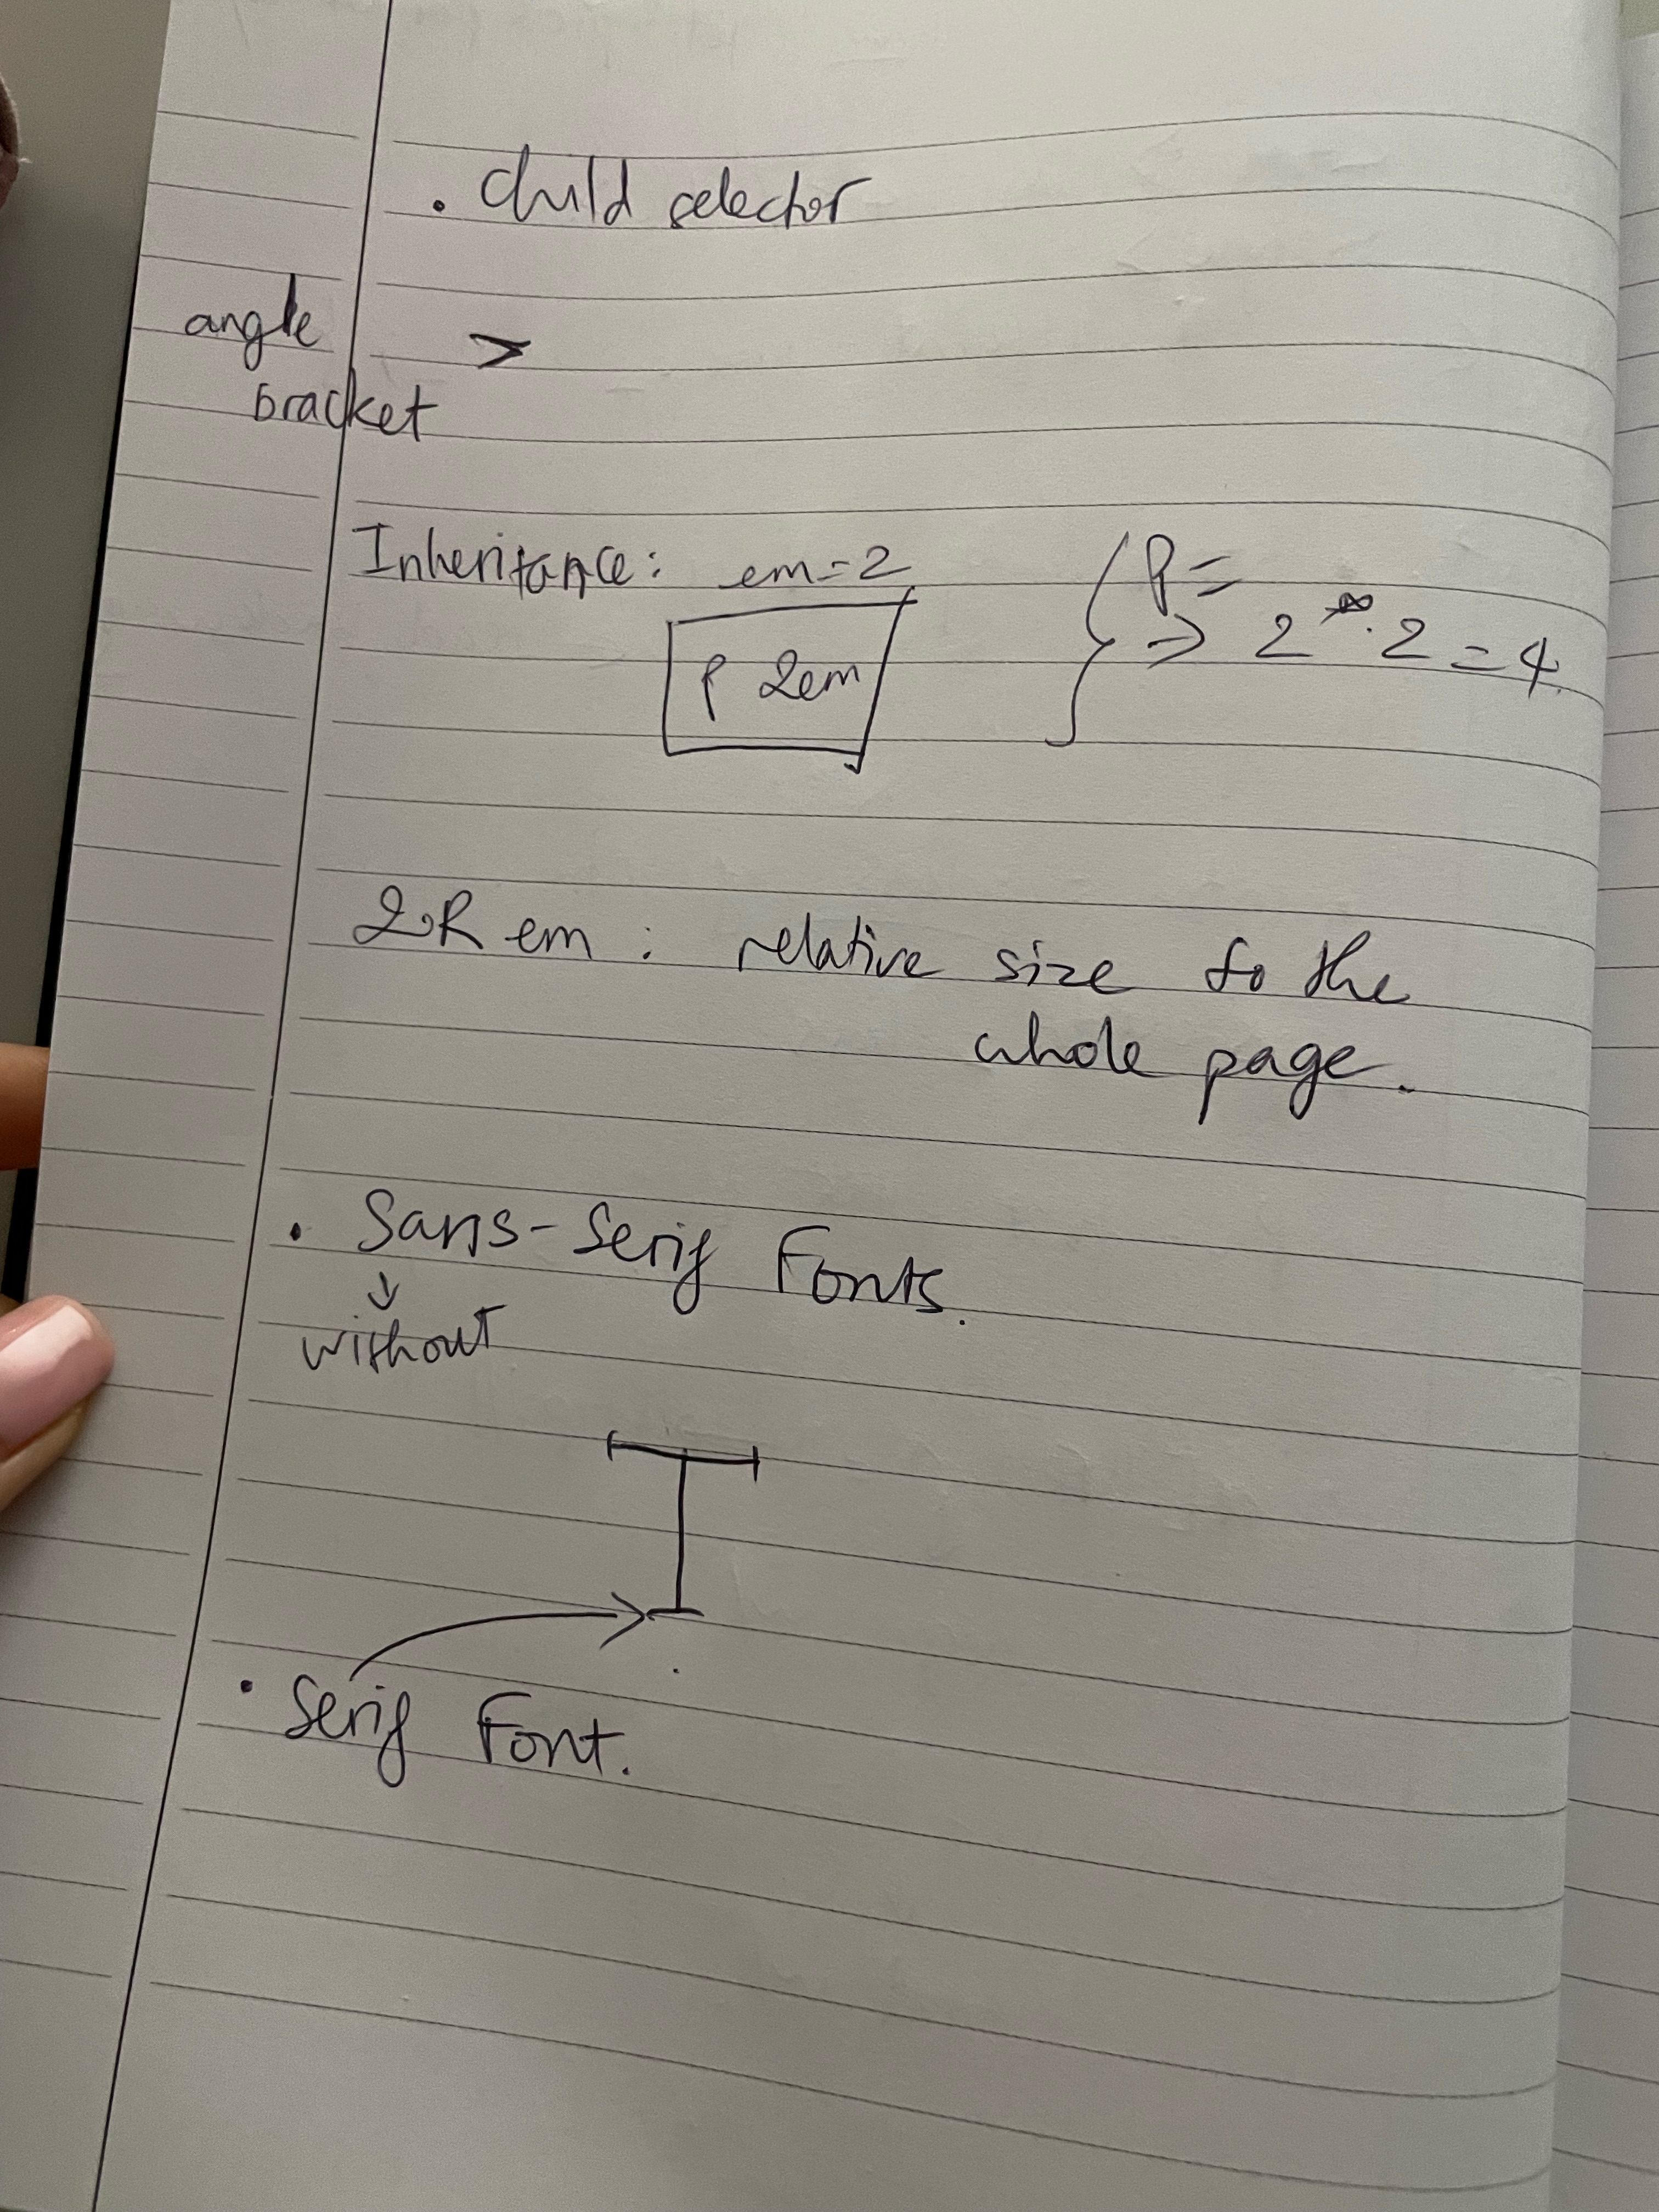 . Child selector
angle >
bracket
Inheritance: em=2
p 2em
P=
=> 2 . 2 = 4.
2R em : relative size to the
whole page.
. Sans-Serif Fonts.
↓
without
T
. Serif Font.